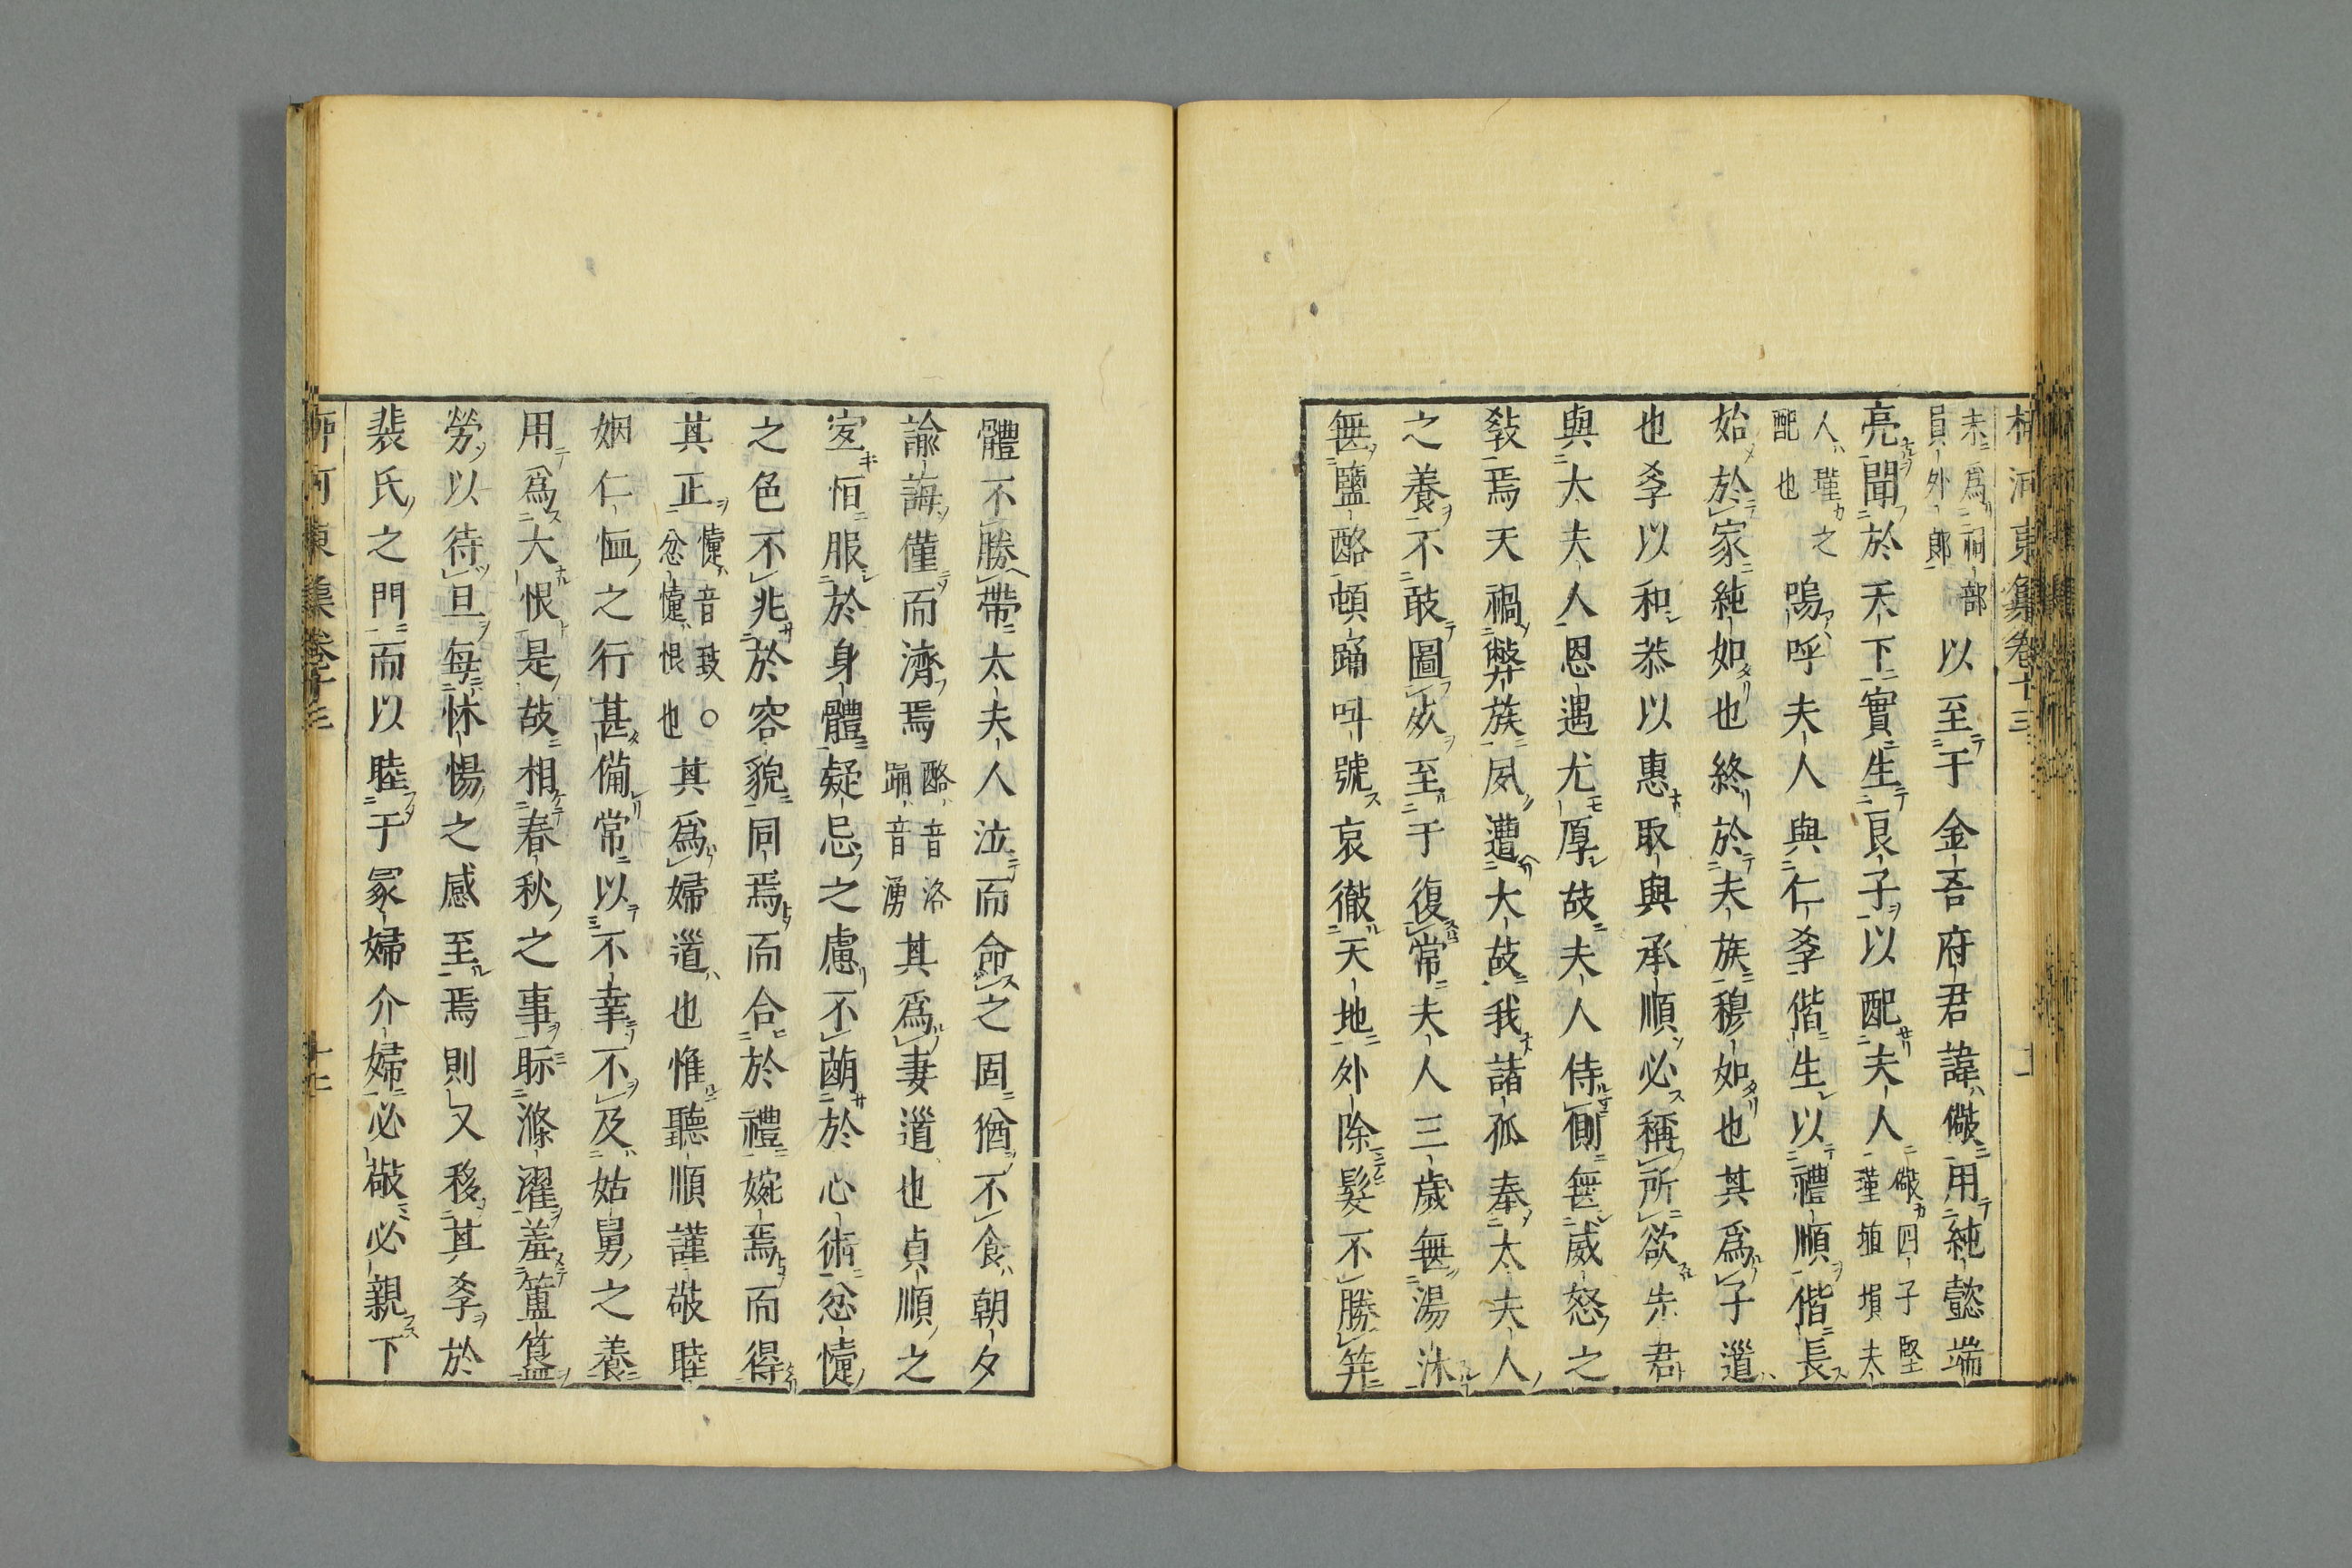 柳河東集卷十三
未爲祠部
員外郎
以至于金吾府君諱儆用純懿端
亮聞於天下實生良子以配夫人
儆四子堅
墐埴塤夫
人墐之
配也
嗚呼夫人與仁孝偕生以禮順偕長
始於家純如也終於夫族穆如也其爲子道
也孝以和恭以惠取與承順必稱所欲先君
與大夫人恩遇尤厚故夫人侍側無威怒之
教焉天禍弊族夙遭大故我諸孤奉太夫人
之養不敢圖死至于復常夫人三歲無湯沐
無鹽酪頓踊叫號哀徹天地外除髮不勝筓
體不勝帶太夫人泣而命之固猶不食朝夕
諭誨僅而濟焉
酪音洛
踊音湧
其爲妻道也貞順之
宜恒服於身體疑忌之慮不萌於心術忿懥
之色不兆於容貌同焉而合於禮婉焉而得
其正
懥音致○
忿懥恨也
其爲婦道也惟聽順謹敬睦
姻仁恤之行甚備常以不幸不及姑舅之養
用爲大恨是故相春秋之事眎滌濯羞簠簋
勞以待旦每怵惕之感至焉則又移其孝於
裴氏之門而以睦于冢婦介婦必敬必親下
柳河東集卷十三